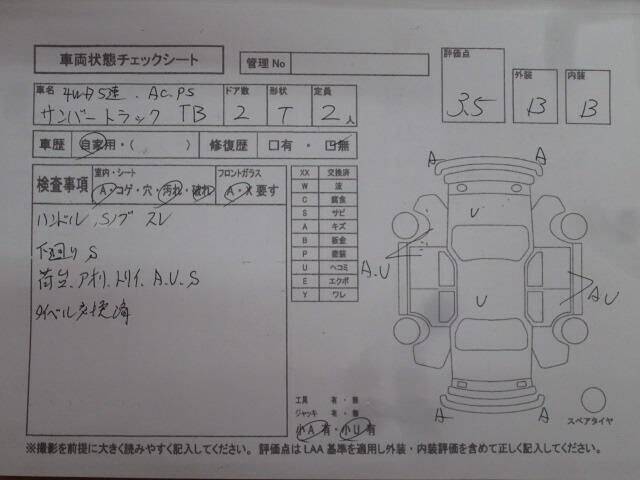 車両状態チェックシート
管理No
評価点
3.5
外装
B
内装
B
車名 4WD 5速 . AC.PS
サンバートラック TB
ドア数
2
形状
T
定員
2人
車歴 自家用・( ) 修復歴 □有・□無
検査事項
室内・シート
A・コゲ・穴・汚れ・破れ
フロントガラス
A・X要す
ハンドル、Sノブ スレ
下廻りS
荷台、アオリ、トリイ、A.U.S
タイベル交換済
XX 交換済
W 波
C 腐食
S サビ
A キズ
B 鈑金
P 塗装
U ヘコミ
E エクボ
Y ワレ
A
A
U
A.U
U
A U
A
A
工具 有・無
ジャッキ 有・無
小A有・小U有
スペアタイヤ
※撮影を前提に大きく読みやすく記入してください。評価点はLAA基準を適用し外装・内装評価を含めて正しく記入してください。